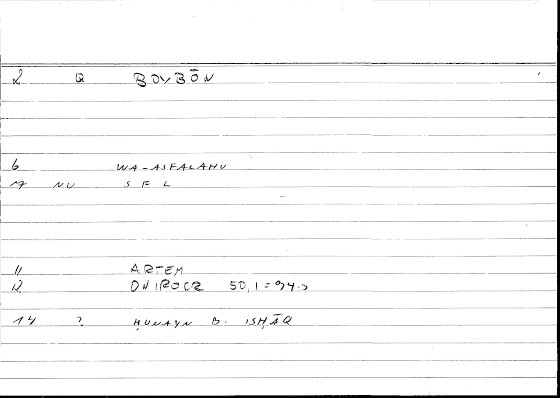 2 Q BOVBŌN
6 WA-ASFALAHU
7 NU S F L
11 ARTEM
12 ONIROCR 50,1 =
14 ? ḤUNAYN B. ISḤĀQ